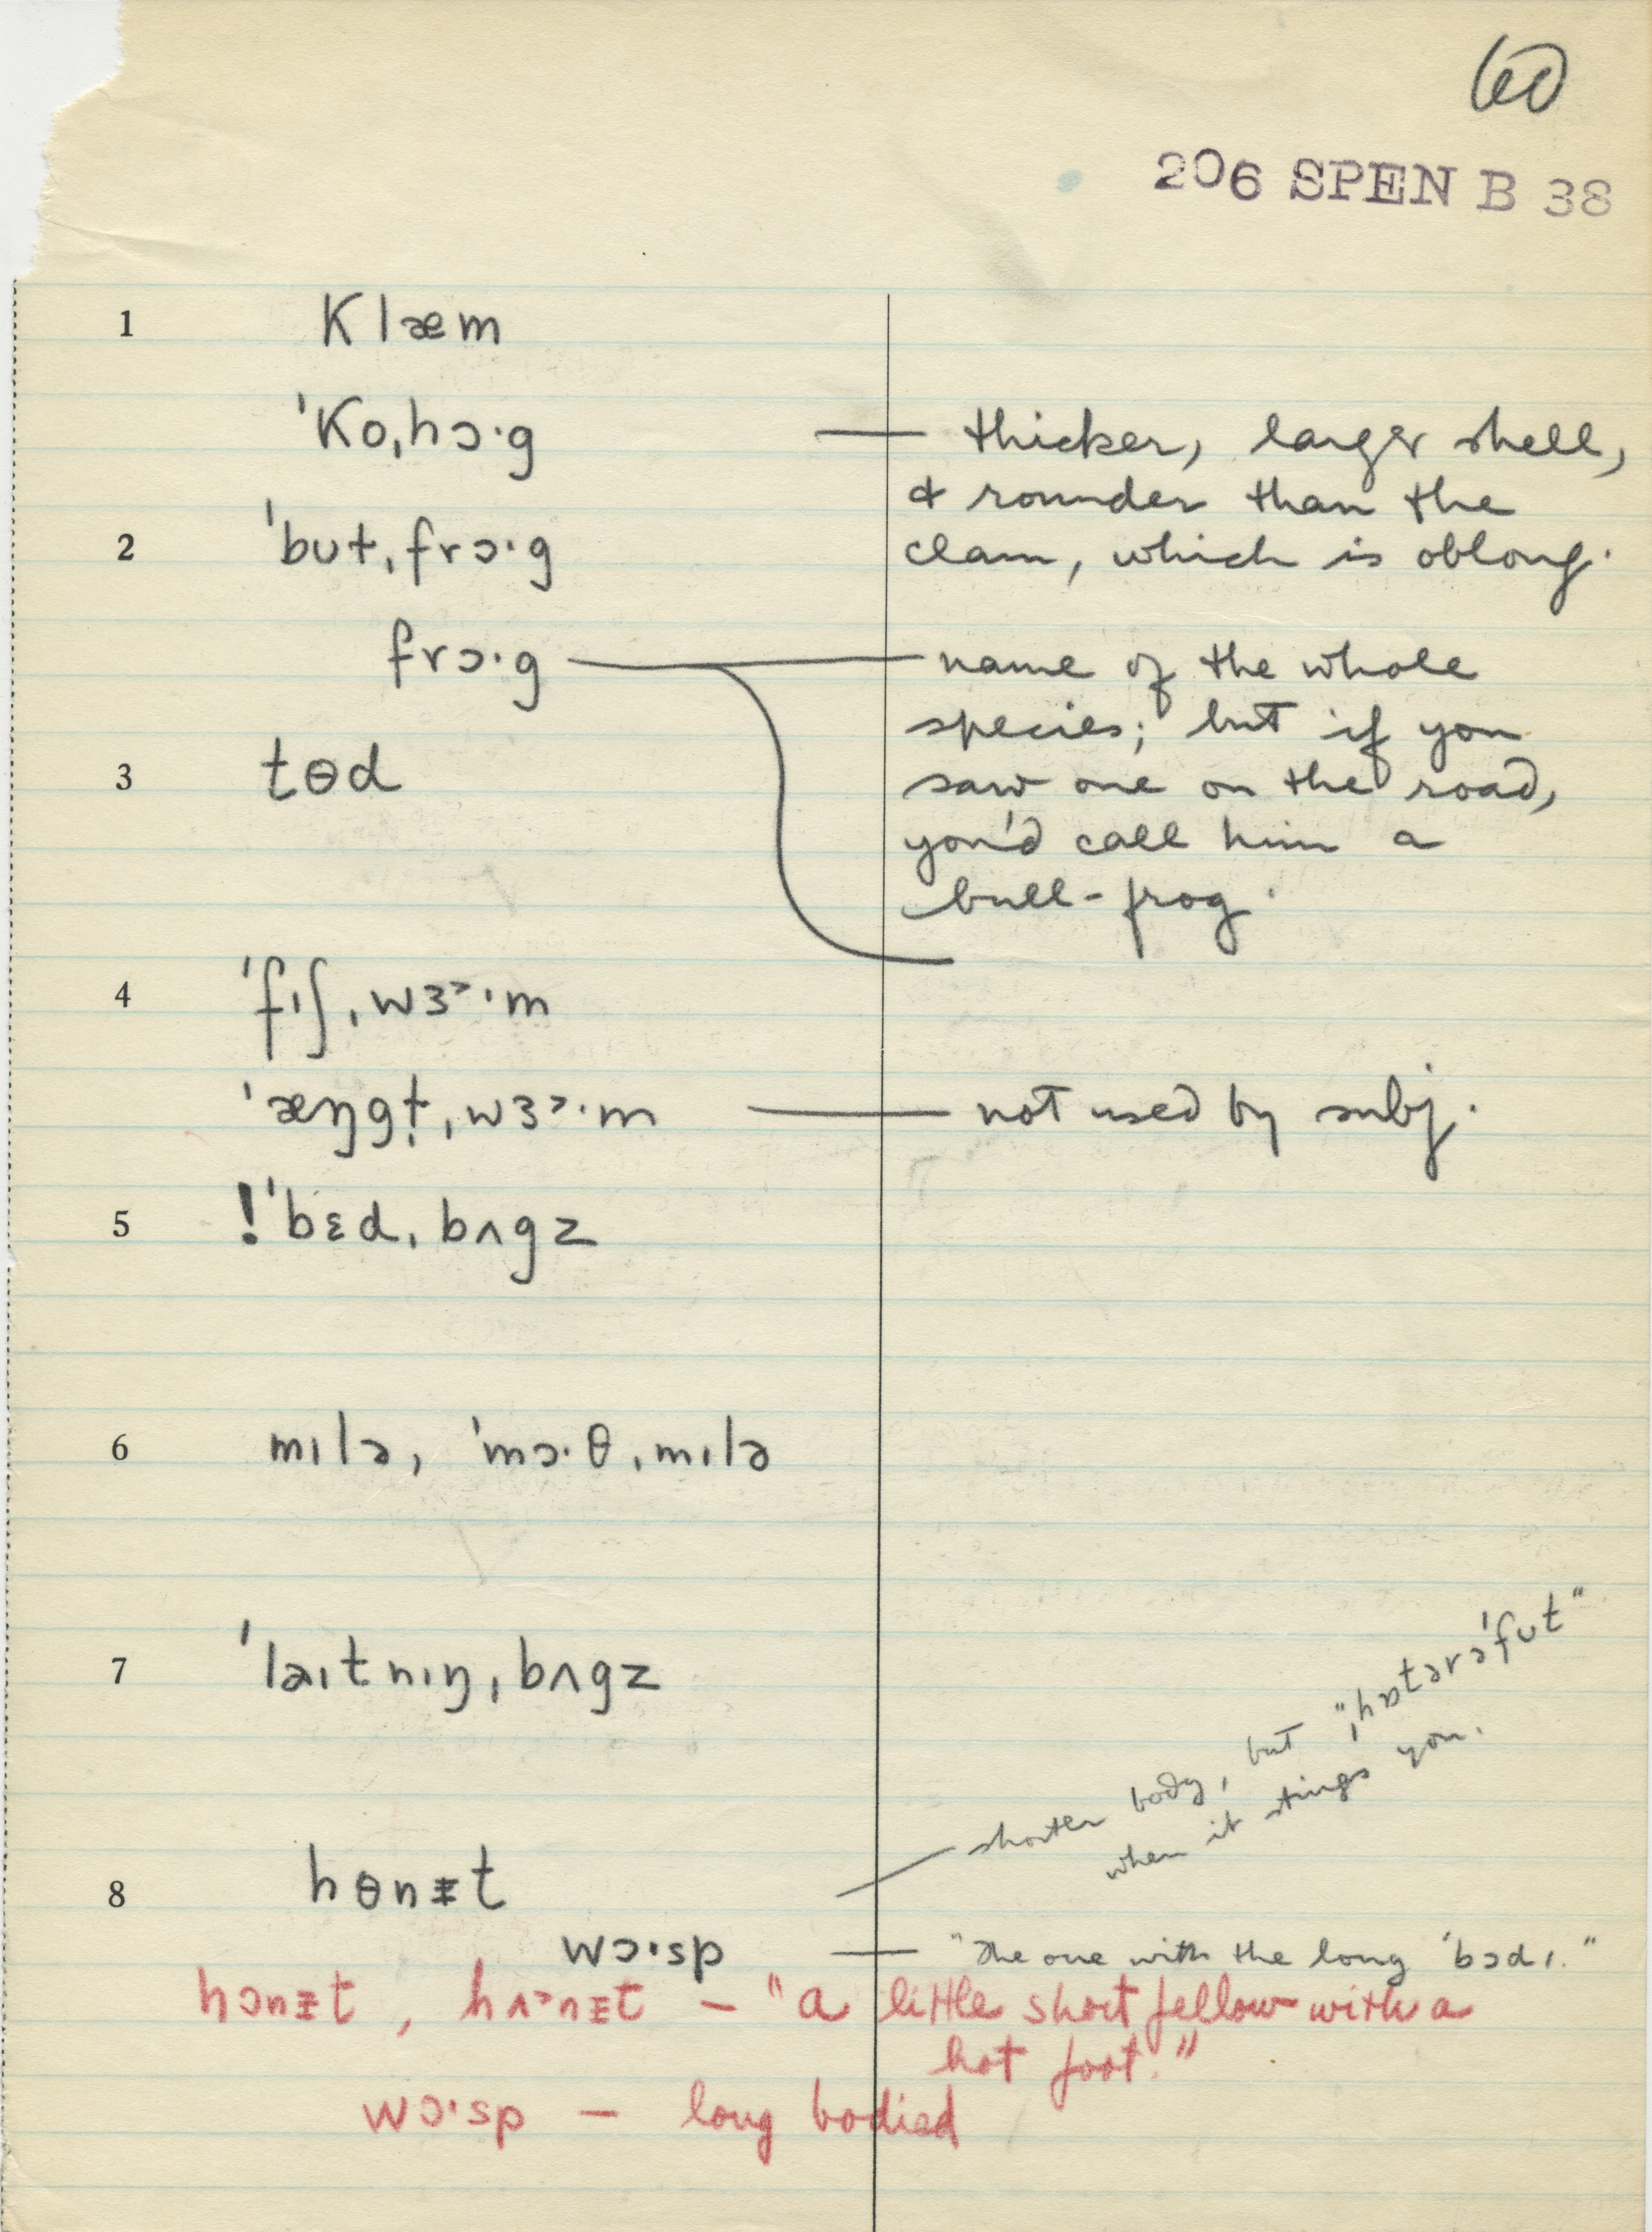 60
206 SPEN B 38
1 klæm
ˈko,hɔ·g — thicker, larger shell,
& rounder than the
2 ˈbʊɫˌfrɔ·g clam, which is oblong.
frɔ·g — name of the whole
species; but if you
3 tɵd saw one on the road,
you'd call him a
bull-frog.
4 ˈfɪʃˌwɜ˃·m
ˈæŋgɫ̩ˌwɜ˃·m — not used by subj.
5 !ˈbɛdˌbʌgz
6 mɪlə, ˈmɔ·θˌmɪlə
7 ˈlaɪtnɪŋˌbʌgz
8 hɵnᵻt — shorter body, but "ˌhɒtərəˈfʊt"
when it stings you.
wɔ·sp — "the one with the long ˈbɔdɪ."
hɔnᵻt, hʌ˃nᵻt — "a little short fellow with a
hot foot."
wɔ·sp — long bodied